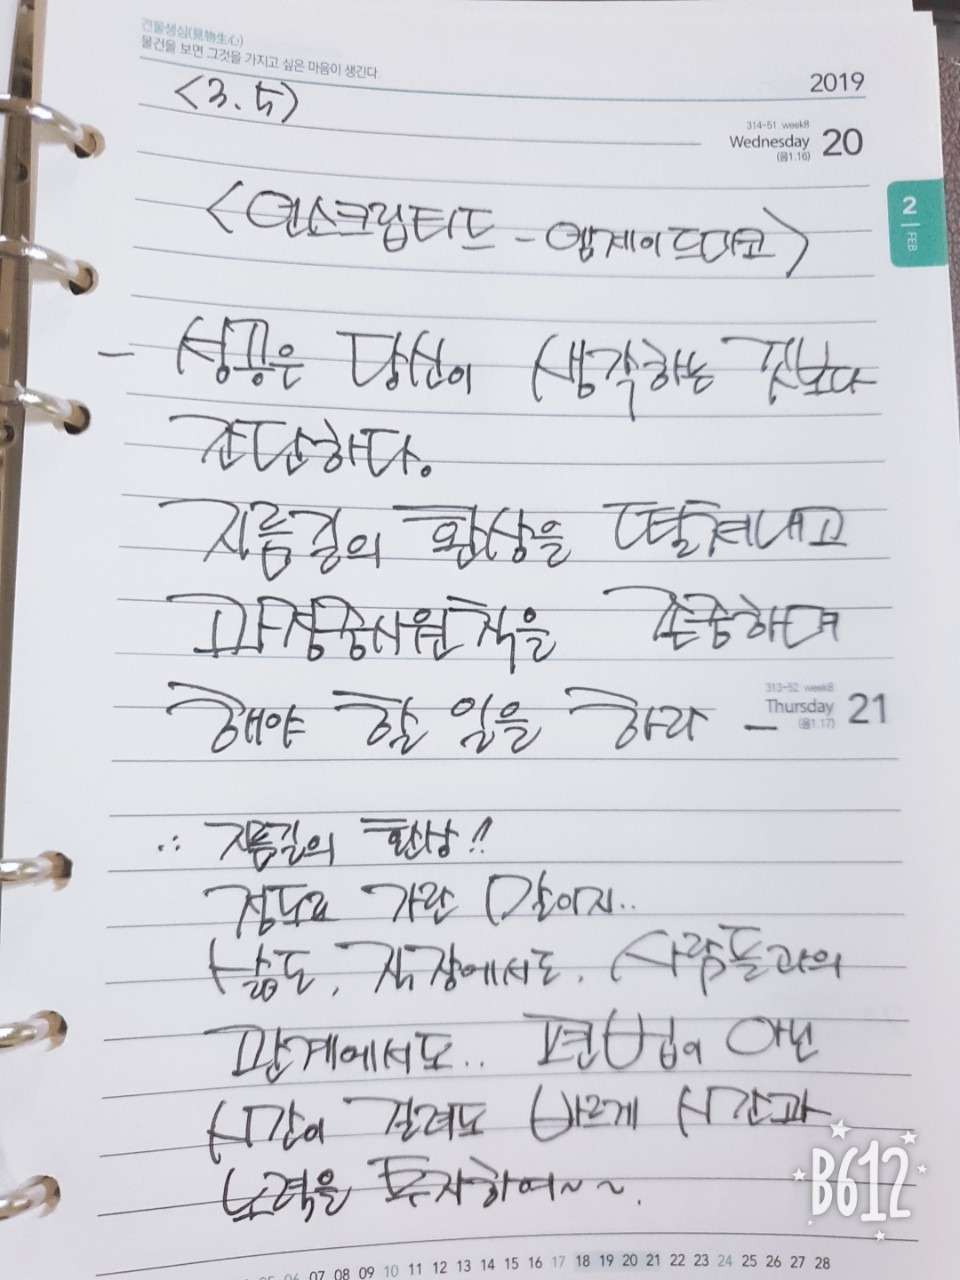 견물생심(見物生心)
물건을 보면 그것을 가지고 싶은 마음이 생긴다.
2019
<3. 5>
314-51 week8
Wednesday 20
(음1.16)
2
FEB
<언스크립티드 - 엠제이드마코>
- 성공은 당신이 생각하는 것보다
간단하다.
지름길의 환상을 떨쳐내고
과정중시원칙을 존중하며
해야 할 일을 하라 -
313-52 week8
Thursday 21
(음1.17)
∴ 지름길의 환상!!
정도로 가란 말이지..
삶도, 직장에서도, 사람들과의
관계에서도.. 편법이 아닌
시간이 걸려도 바르게 시간과
노력을 투자하여~~.
B612
06 07 08 09 10 11 12 13 14 15 16 17 18 19 20 21 22 23 24 25 26 27 28